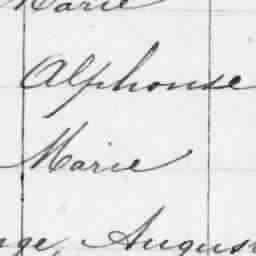 Marie
Alphonse
Marie
ge, August